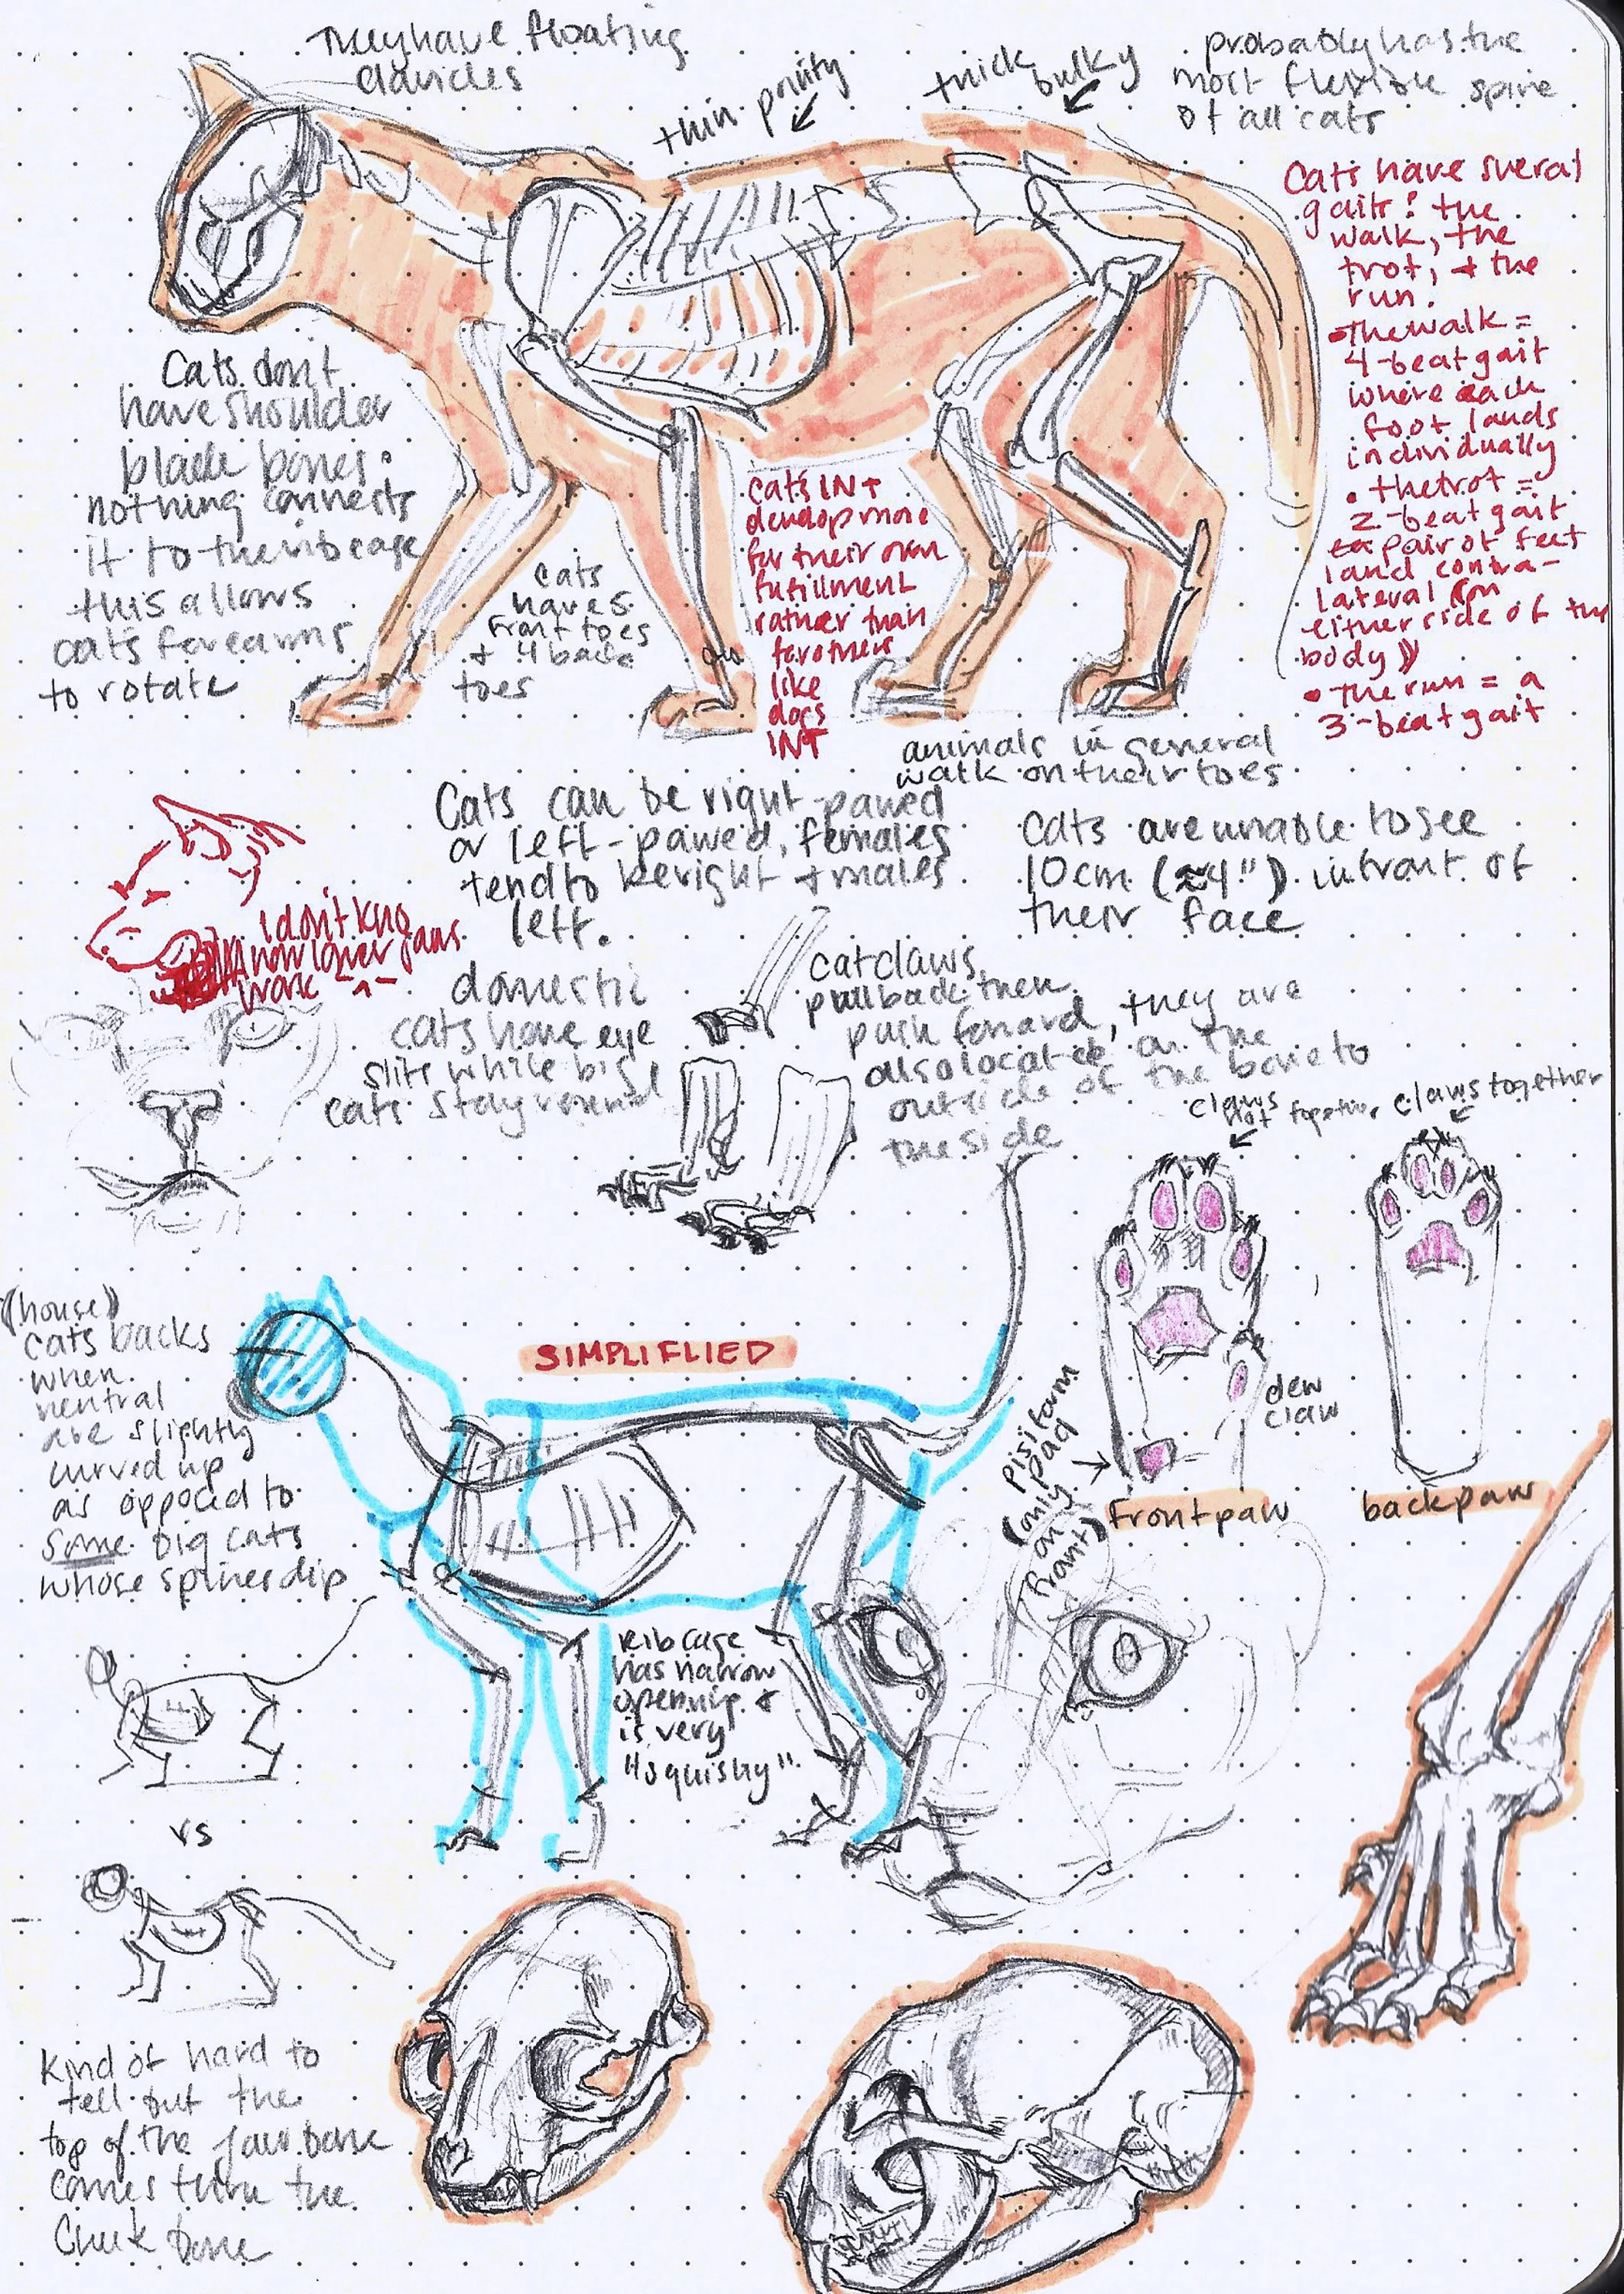 They have floating
clavicles
thin pointy
thick bulky
probably has the
most flexible spine
of all cats
Cats have sveral
gaits: the
walk, the
trot, + the
run.
• The walk =
4-beat gait
where each
foot lands
individually
• the trot =
2-beat gait
pair of feet
land contra-
lateral (on
either side of the
body)
• The run = a
3-beat gait
Cats don't
have shoulder
blade bones.
nothing connects
it to the ribcage
this allows
cats forearms
to rotate
cats
have 5
front toes
+ 4 back
toes
cats INT
develop more
for their own
fufillment
rather than
for others
like
dogs
INT
animals in general
walk on their toes
Cats can be right-pawed
or left-pawed, females
tend to be right + males
left.
Cats are unable to see
10cm (≈4") infront of
their face
I don't kno
how lower jaws
work ^-^
domestic
cats have eye
slits while big
cats stay round
cat claws
pull back then
push forward, they are
also located on the
outside of the bone to
the side
claws
not together
claws together
(house)
cats backs
when
nentral
are slightly
curved up
as opposed to
some big cats
whose spines dip
SIMPLIFLIED
dew
claw
Pisiform
pad
(only
on
front)
Front paw
backpaw
Ribcage
has narrow
opening +
is very
"squishy"
vs
Kind of hard to
tell but the
top of the jaw bone
comes thru the
Cheek bone